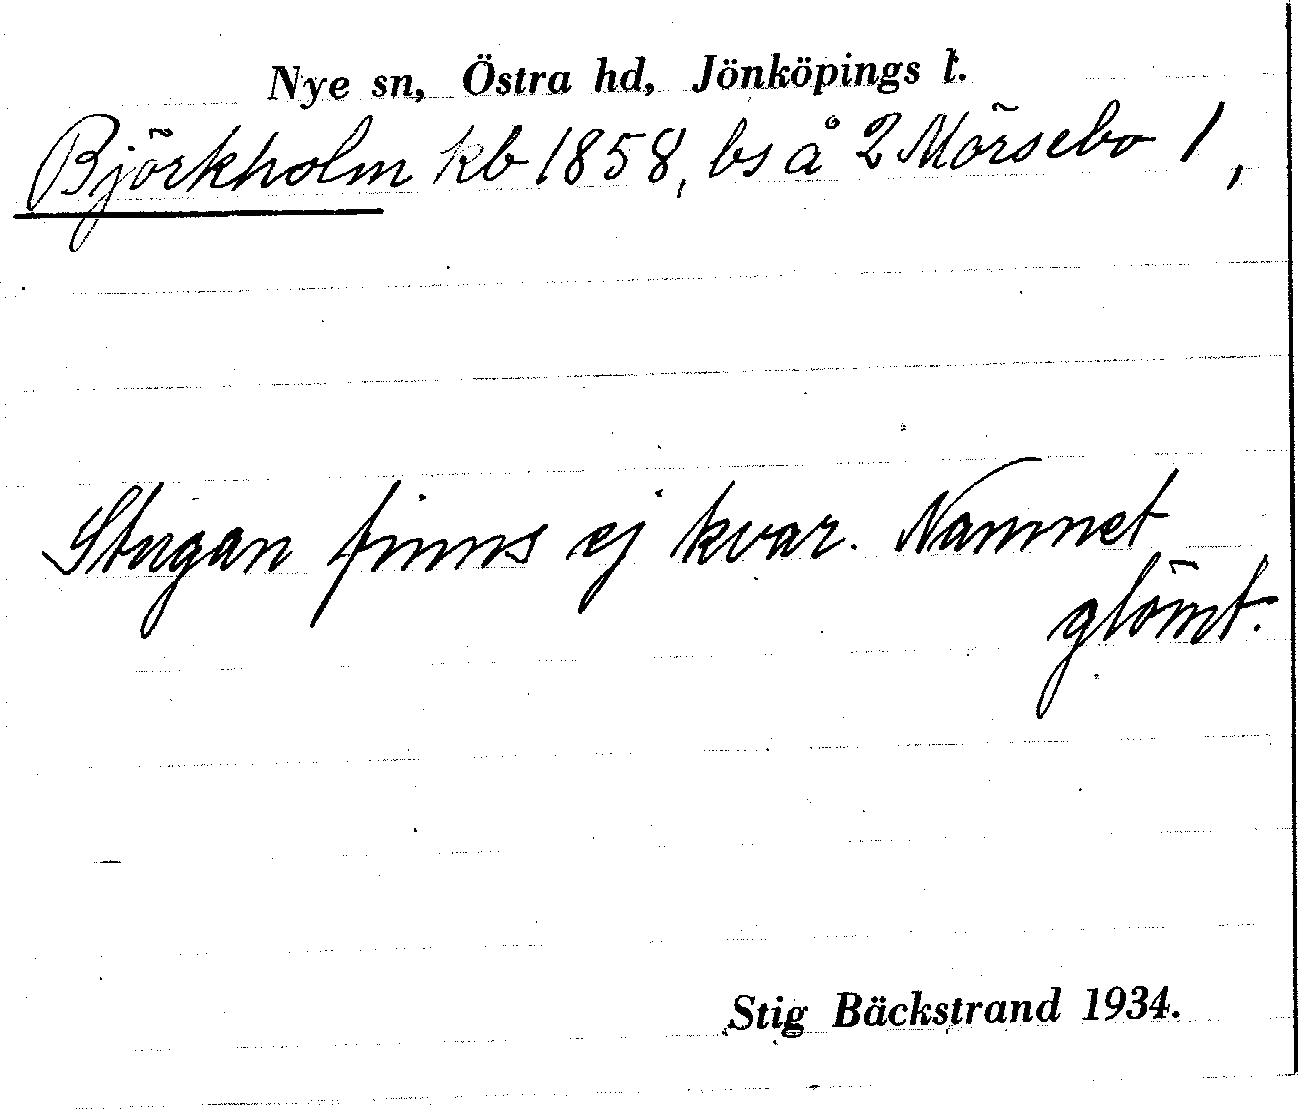 Nye sn, Östra hd, Jönköpings l.
Björkholm kb 1858, bs å 2 Mörsebo 1,
Stugan finns ej kvar. Namnet
glömt.
Stig Bäckstrand 1934.